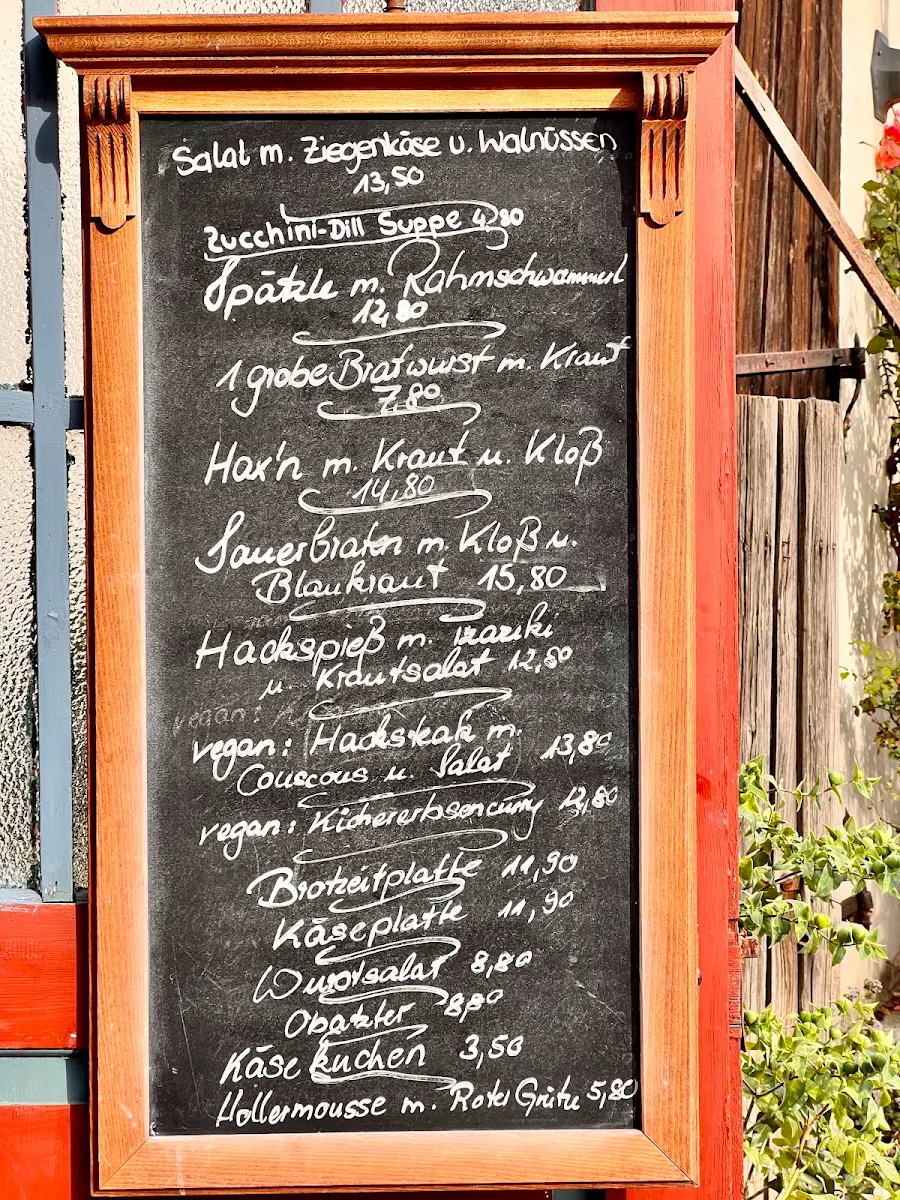 Salat m. Ziegenkäse u. Walnüssen
13,50
Zucchini-Dill Suppe 4,80
Spätzle m. Rahmschwammerl
12,80
1 grobe Bratwurst m. Kraut
7,80
Hax'n m. Kraut u. Kloß
14,80
Sauerbraten m. Kloß u.
Blaukraut 15,80
Hackspieß m. Tzaziki
u. Krautsalat 12,80
vegan:
vegan: Hacksteak m.
Couscous u. Salat 13,80
vegan: Kichererbsencurry 12,80
Brotzeitplatte 11,90
Käseplatte 11,90
Wurstsalat 8,80
Obatzter 8,80
Käsekuchen 3,50
Hollermousse m. Roter Grütze 5,80